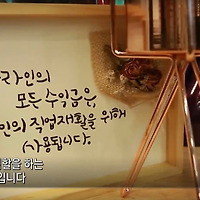 라인의
모든 수익금은,
인의 직업재활을 위해
사용됩니다.
활을 하는
입니다